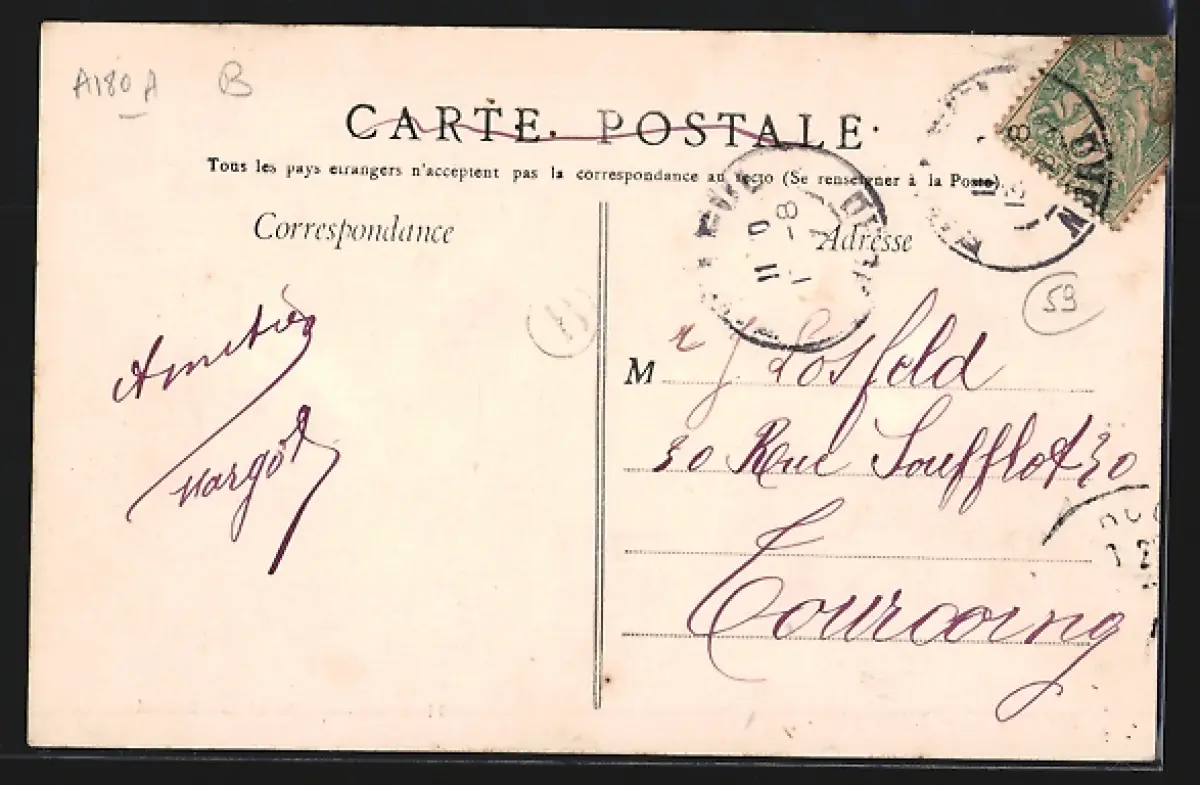 A180A B
CARTE POSTALE
Tous les pays etrangers n'acceptent pas la correspondance au recto (Se renseigner à la Poste).
Correspondance
Adresse
59
Amitiés
Margot
M r J Losfeld
30 Rue Soufflot 30
Tourcoing